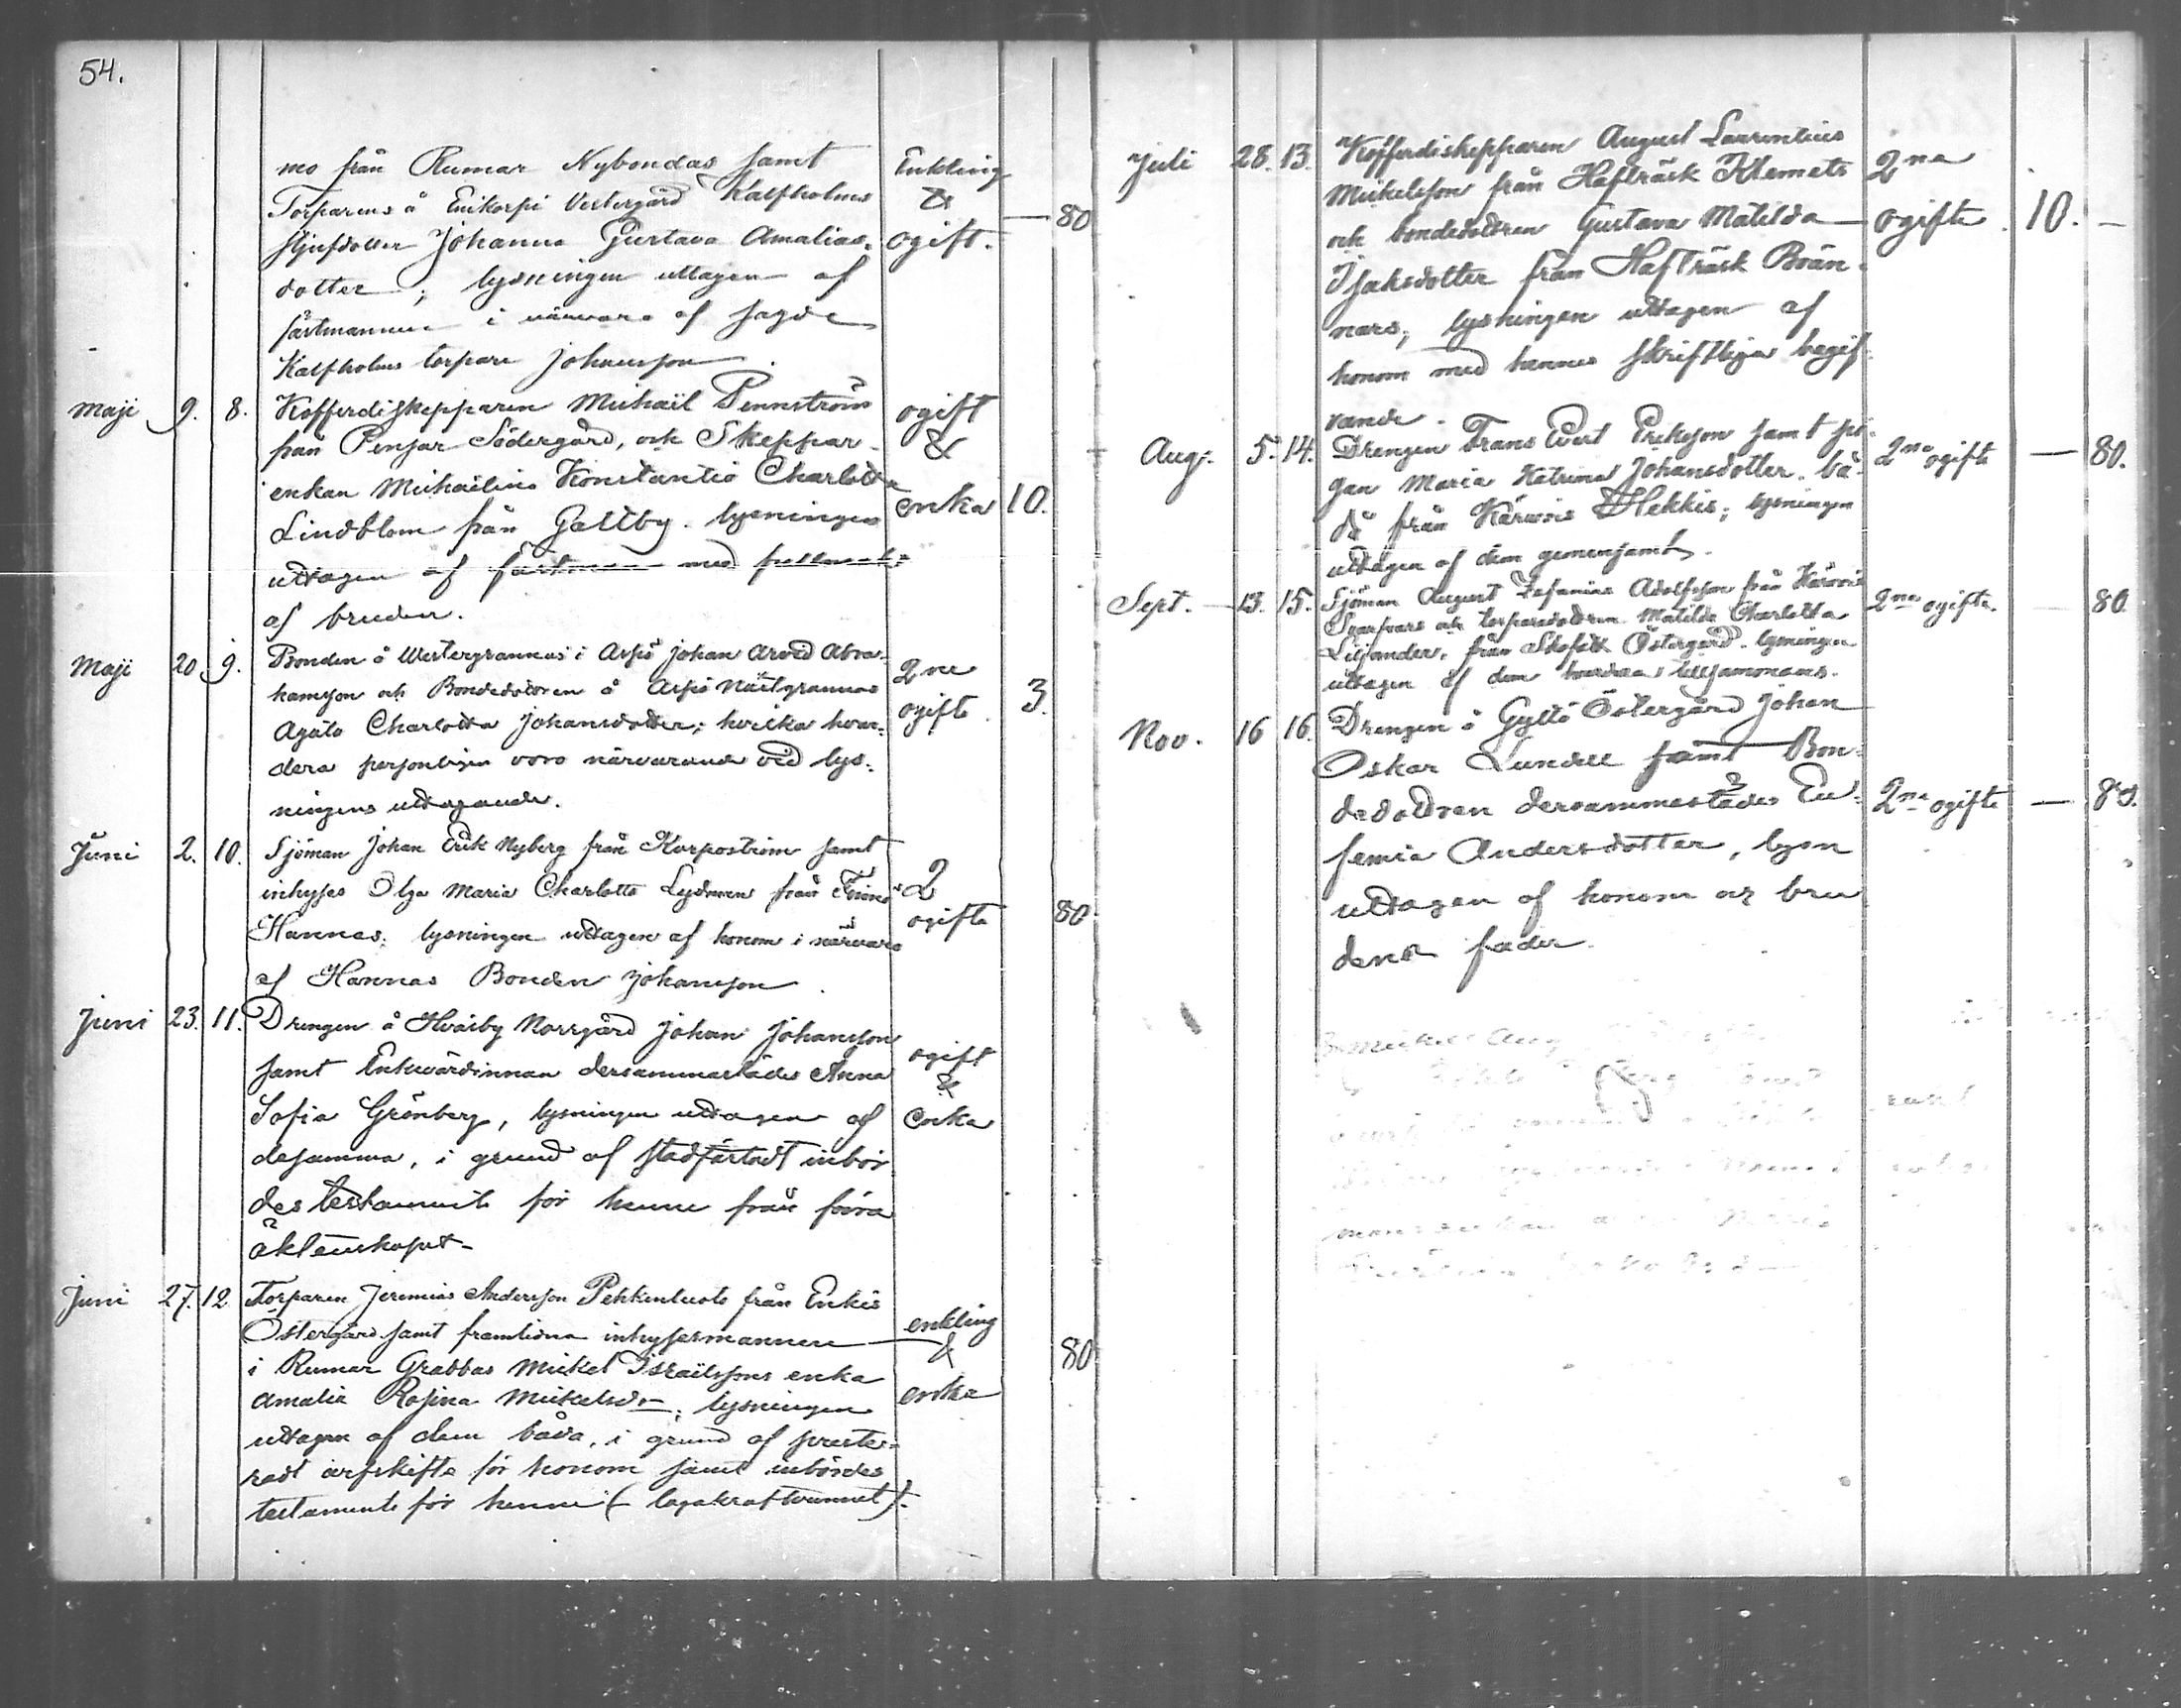 54.
mo från Rumar Nybondas samt Enkling
Torparens å Enikorpi Vestergård Kalfholms &
styfdotter Johanna Gustava Amalias- ogift. — 80
dotter; lysningen uttagen af
fästmannen i närvaro af sagde
Kalfholms torpare Johansson.
Maji 9. 8. Kofferdiskepparen Michaël Pennström ogift
från Penjar Södergård, och Skeppar- &
enkan Michaëlina Konstantia Charlotta enka 10.
Lindblom från Galtby. lysningen
uttagen af fästman med fullmakt
af bruden.
Maji 20. 9. Bonden å Westergrannas i Arpö Johan Arvid Abra- 2ne
hamsson och Bondedottren å Arpö
Agata Charlotta Johansdotter; hvilka hvar- ogifte. 3.
dera personligen voro närvarande vid lys-
ningens uttagande.
Juni 2. 10. Sjöman Johan Erik Nyberg från Korpoström samt
inhyses Olga Maria Charlotta från Finnö 2
Hannas; lysningen uttagen af honom i närvaro ogifta 80
af Hannas Bonden Johansson.
Juni 23. 11. Drengen å Hvarby Norrgård Johan Johansson ogift
samt Enkvärdinnan dersammastädes Anna &
Sofia Grönberg, lysningen uttagen af enka
desamma, i grund af stadfästadt inbör
des testamente för henne från förra
äktenskapet.
Juni 27. 12. Torparen Jeremias Andersson Pekkenluoto från Enkis enkling
Östergård samt framlidna inhysesmannen &  80
i Rumar Grabbas Mickel Israëlssons enka
Amalia Rosina Mickelsdr; lysningen enka
uttagen af dem båda, i grund af preste-
radt arfskifte för honom samt inbördes
testamente för henne (lagakraftvunnet).
Juli 28. 13. Kofferdiskepparen August Laurentius
Mickelsson från Hafträsk Klemets 2ne
och bondedottren Gustava Matilda ogifte. 10. —
Isaksdotter från Hafträsk Brän-
nars; lysningen uttagen af
honom med hennes skriftliga begif-
vande.
Aug. 5. 14. Drengen Frans Evert Eriksson samt pi- 2ne ogifte — 80.
gan Maria Katrina Johansdotter. bå-
då från Kärvois Hekkis; lysningen
uttagen af dem gemensamt.
Sept. 13. 15. Sjöman August Zefanias Adolfsson från Kärvois 2ne ogifte. — 80.
Svarfvars och torparedottren Matilda Charlotta
Liljander, från Östergård. lysningen
uttagen af dem tillsammans.
Nov. 16 16. Drengen å Gyltö Östergård Johan
Oskar Lundell samt Bon-
dedottren dersammastädes Eu- 2ne ogifte — 80.
femia Andersdotter, lysn
uttagen af honom och bru
dens fader.